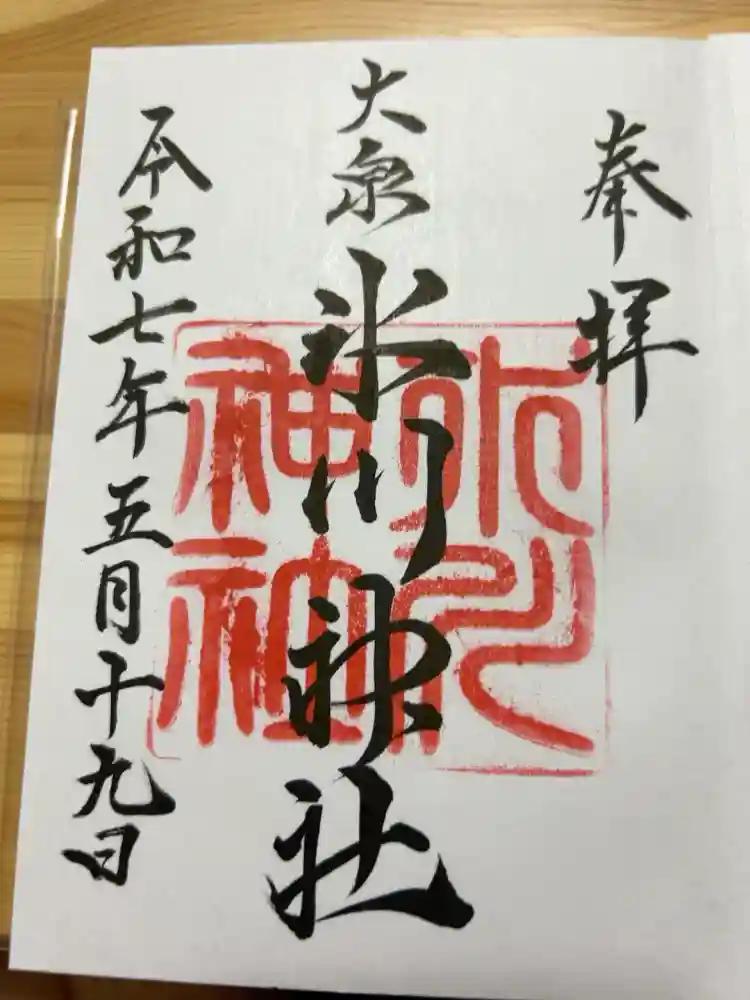 奉拝
大泉
氷川神社
令和七年五月十九日
氷川
神社